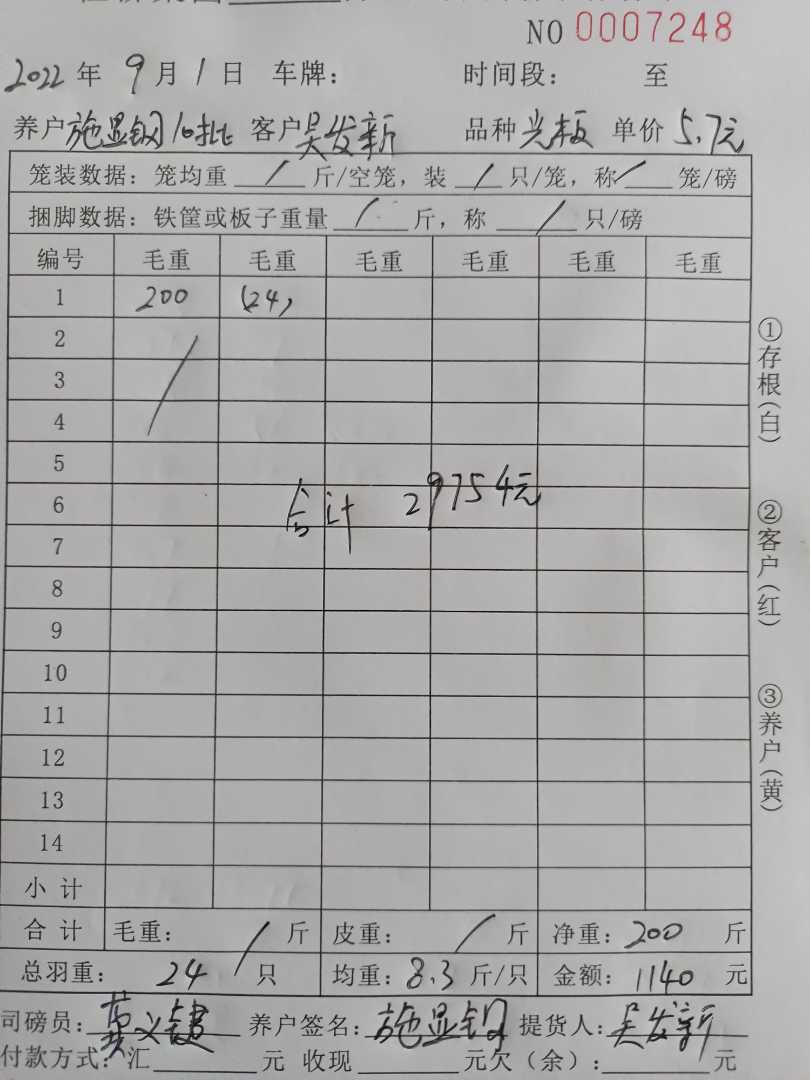 NO 0007248
2022 年 9 月 1 日 车牌: 时间段: 至
养户 施显钢 10批 客户 吴发新 品种 光板 单价 5.7元
笼装数据: 笼均重 / 斤/空笼, 装 / 只/笼, 称 / 笼/磅
捆脚数据: 铁筐或板子重量 / 斤, 称 / 只/磅
编号 毛重 毛重 毛重 毛重 毛重 毛重
1 200 (24)
2
3
4
5
6
合计 29754元
7
8
9
10
11
12
13
14
小 计
合 计 毛重: / 斤 皮重: / 斤 净重: 200 斤
总羽重: 24 只 均重: 8.3 斤/只 金额: 1140 元
司磅员: 黄义键 养户签名: 施显钢 提货人: 吴发新
付款方式: 汇 元 收现 元欠(余): 元
①存根(白)
②客户(红)
③养户(黄)